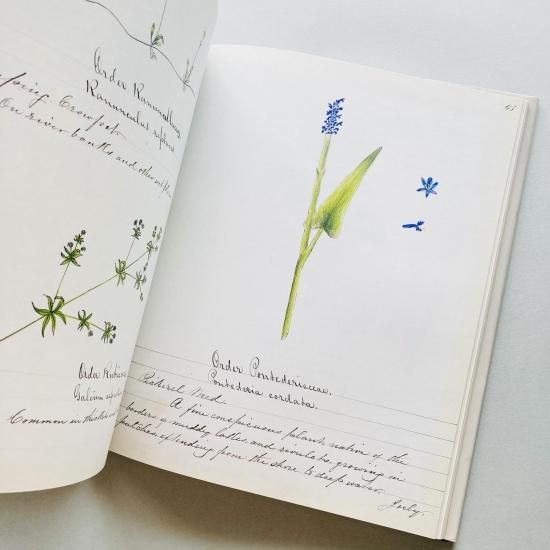 Order Ranunculaceae
Ranunculus repens
Spring Crowfoot
On river banks and other wet places
Order Rubiaceae
Galium
Common in thickets and
45
Order Pontederiaceae.
Pontederia cordata.
Pickerel Weed.
A fine conspicuous plant, native of the
borders of muddy lakes and rivulets, growing in
patches, extending from the shore to deep water.
July.